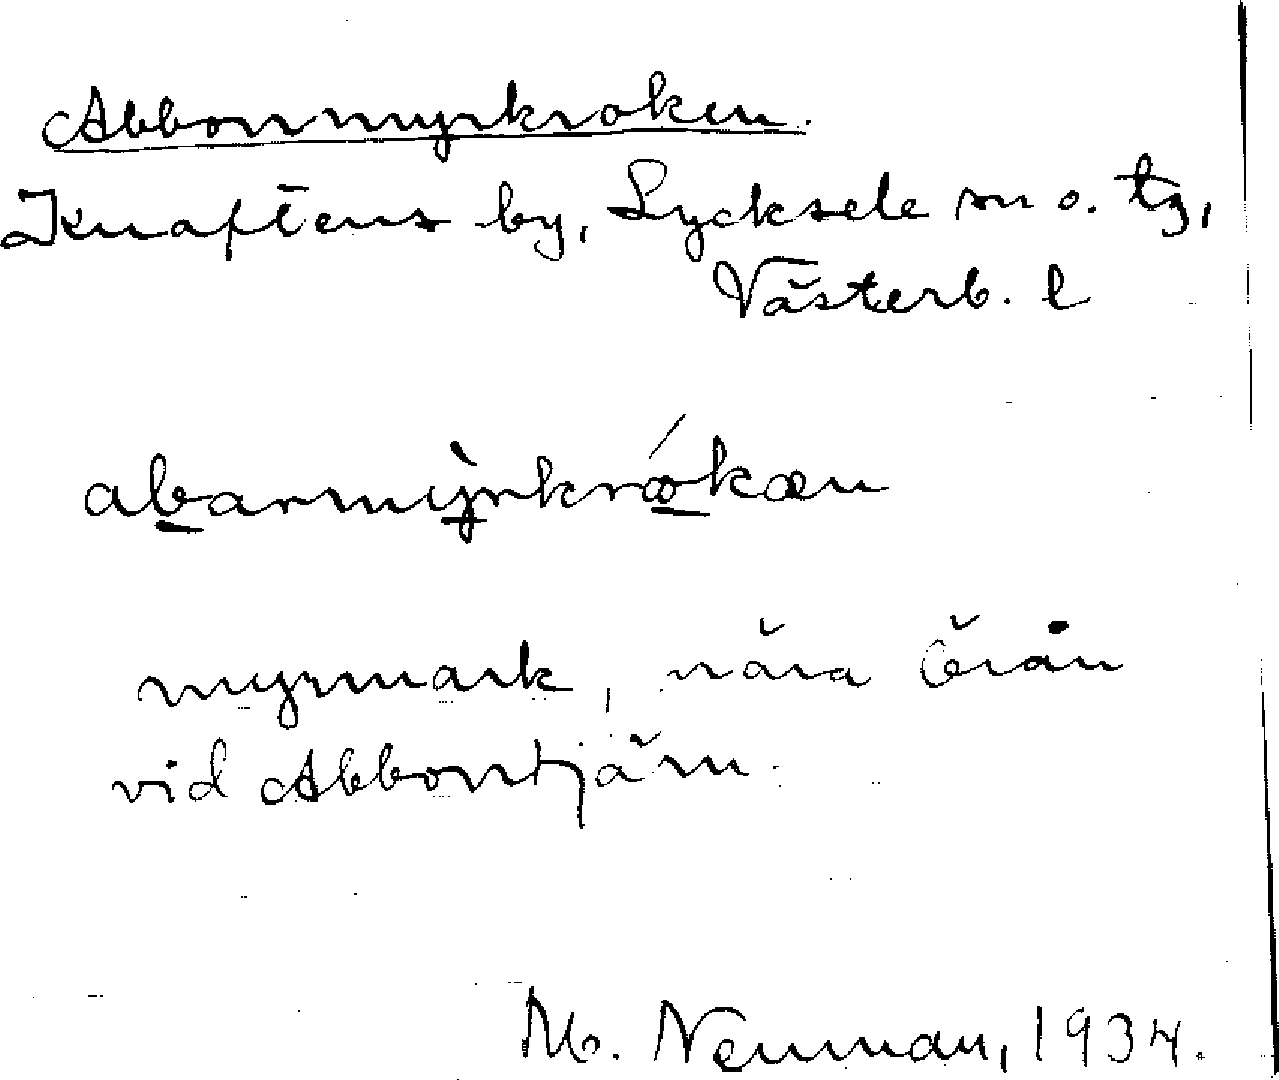 Abborrmyrkroken.
Knaftens by, Lycksele sn o. tg,
Västerb. l
abarmỳrkrókæn
myrmark, nära Örån
vid Abborrtjärn.
M. Neuman, 1934.